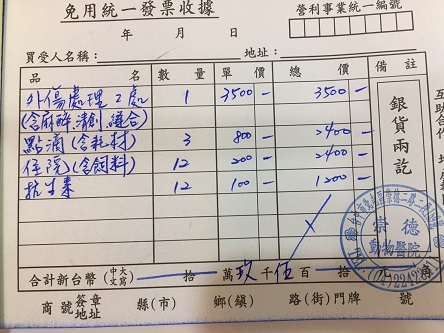 免用統一發票收據
營利事業統一編號
年 月 日
買受人名稱： 地址：
品 名 數 量 單 價 總 價 備 註
外傷處理2處 1 3500- 3500-
(含麻醉.清創.縫合)
點滴(含耗材) 3 800- 2400-
住院(含飼料) 12 200- 2400-
抗生素 12 100- 1200-
銀貨兩訖
崇德
動物醫院
合計新台幣 (中文大寫) 拾 萬 玖 千 伍 百 拾
商號簽章地址 縣(市) 鄉(鎮) 路(街)門牌 號